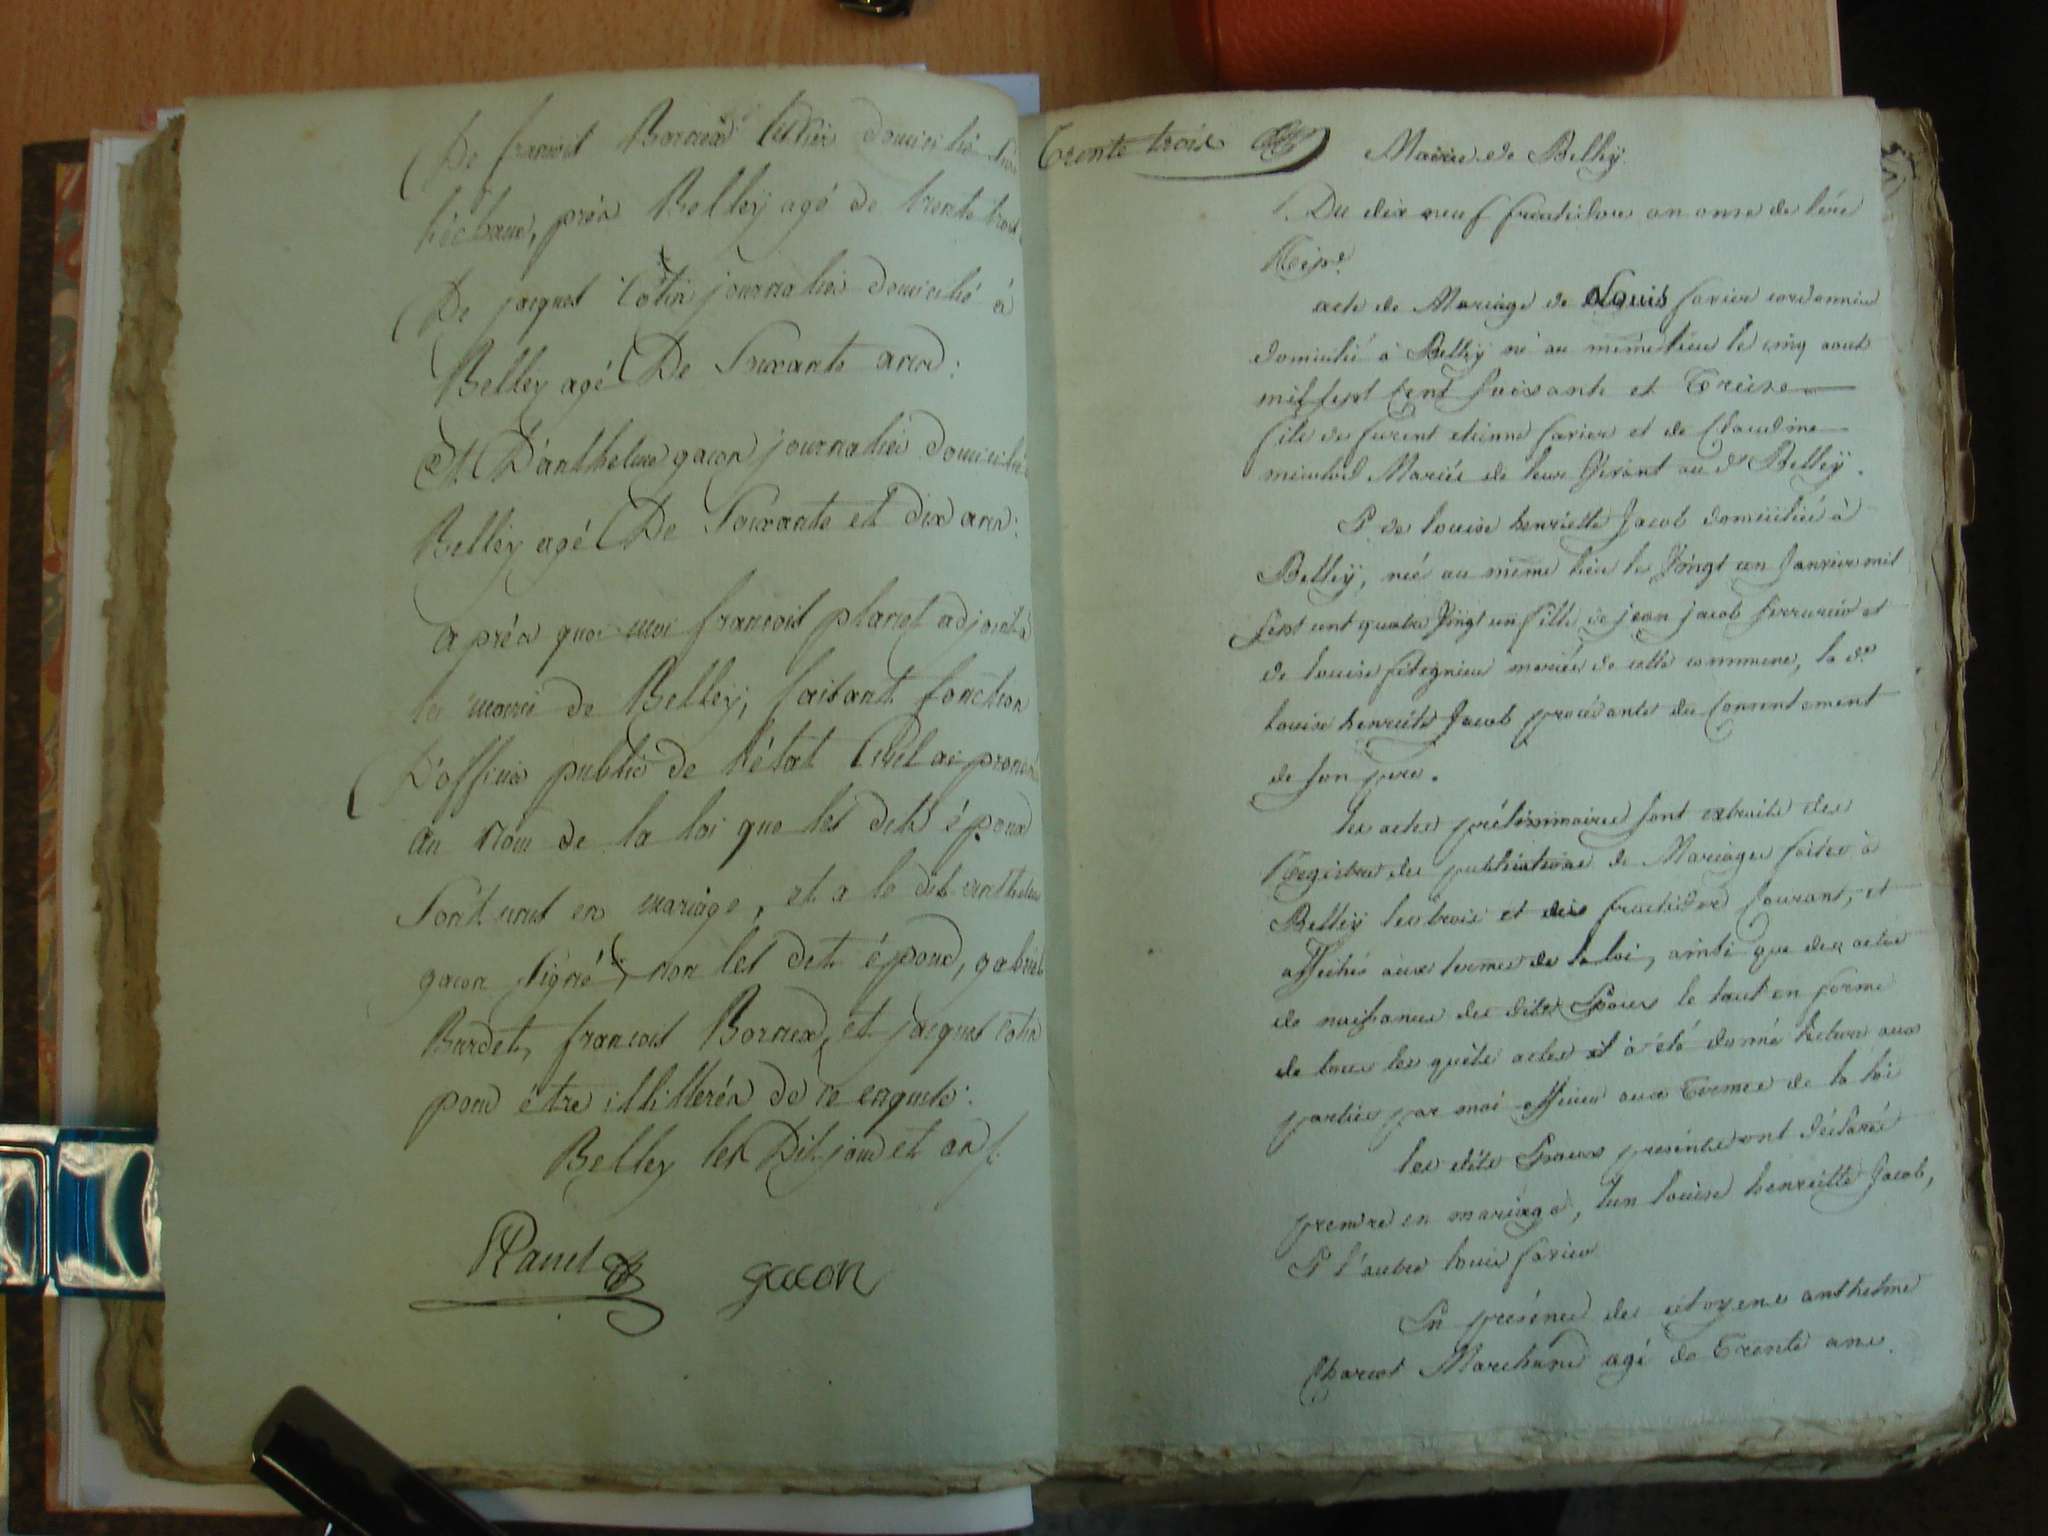 De francois Bornex domicilié
près Belley agé de trente trois
De jacques Cotin journalier domicilié à
Belley agé De Soixante ans:
Et D'anthelme gacon journalier domicilié
Belley agé De Soixante et dix ans:
après quoi moi francois planet adjoint à
la mairie de Belley, faisant fonction
D'officier public de l'état Civil ai prononcé
au nom de la loi que les dits époux
Sont unis en mariage, et a le dit anthelme
gacon signé, non les dits époux, gabriel
Burdet, francois Bornex, et jacques Cotin
pour être illitterés de ce enquis.
Belley les Dit jour et an
Planet gacon
Trente trois
Mairie de Belley
Du dix neuf fructidor an onze de l'ére
Repne
acte de Mariage de Louis favier cordonnier
domicilié à Belley né au même lieu le cinq aout
mil sept Cent soixante et Treize
fils de etienne favier et de Claudine
Mariés de leur vivant au dt Belley.
Et de louise henriette Jacob domiciliée à
Belley, née au même lieu le Vingt un Janvier mil
Sept cent quatre Vingt un fille de jean jacob serrurier et
de louise mariés de cette commune, la de
louise henriette Jacob procédante du Consentement
de son pere.
les actes préliminaires sont extraits des
Registres des publications de Mariages faites à
Belley les trois et dix fructidor Courant, et
affichés aux termes de la loi, ainsi que des actes
de naissances des dits Epoux le tout en forme
de tous les quels actes il a été donné lecture aux
parties par moi officier aux Termes de la loi
les dits Epoux présents ont déclaré
prendre en mariage, l'un louise henriette Jacob,
Et l'autre louis favier
En présence des citoyens anthelme
Charcot Marchand agé de Trente ans